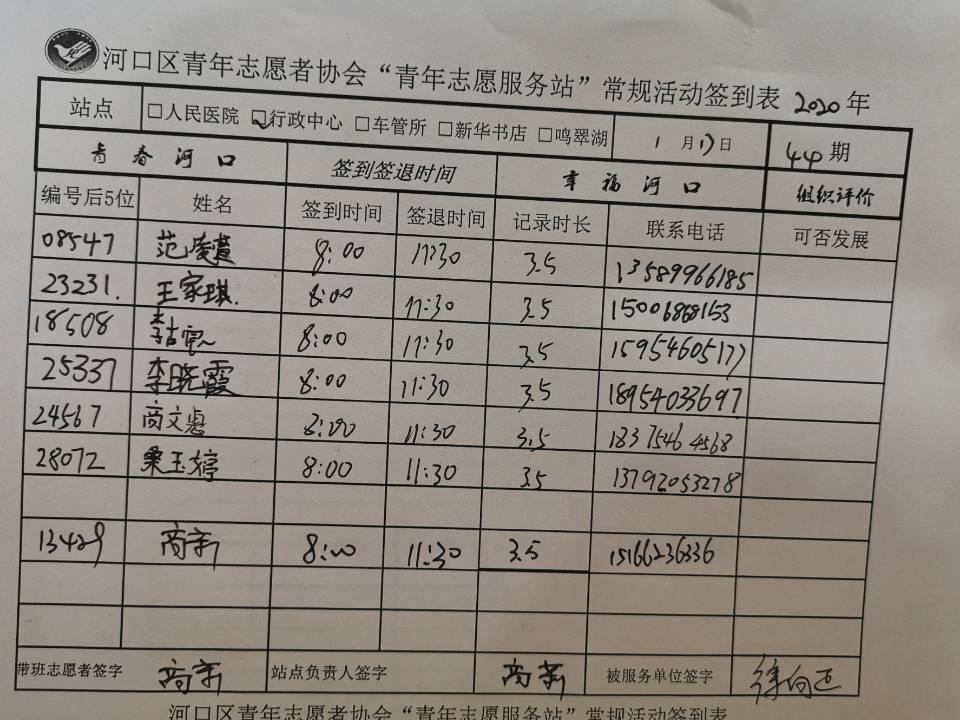 河口区青年志愿者协会“青年志愿服务站”常规活动签到表 2020年
站点 □人民医院 ☑行政中心 □车管所 □新华书店 □鸣翠湖 1月17日 44期
青春河口 签到签退时间 幸福河口 组织评价
编号后5位 姓名 签到时间 签退时间 记录时长 联系电话 可否发展
08547 范 8:00 11:30 3.5 13589966185
23231. 王家琪. 8:00 11:30 3.5 15006868153
18508 李 8:00 11:30 3.5 15954605177
25337 李晓霞 8:00 11:30 3.5 18954033697
24567 商文 8:00 11:30 3.5 18375464568
28072 栗玉婷 8:00 11:30 3.5 13792053278
13429 商新 8:00 11:30 3.5 15166236336
带班志愿者签字 商新 站点负责人签字 商新 被服务单位签字 徐向
河口区青年志愿者协会“青年志愿服务站”常规活动签到表